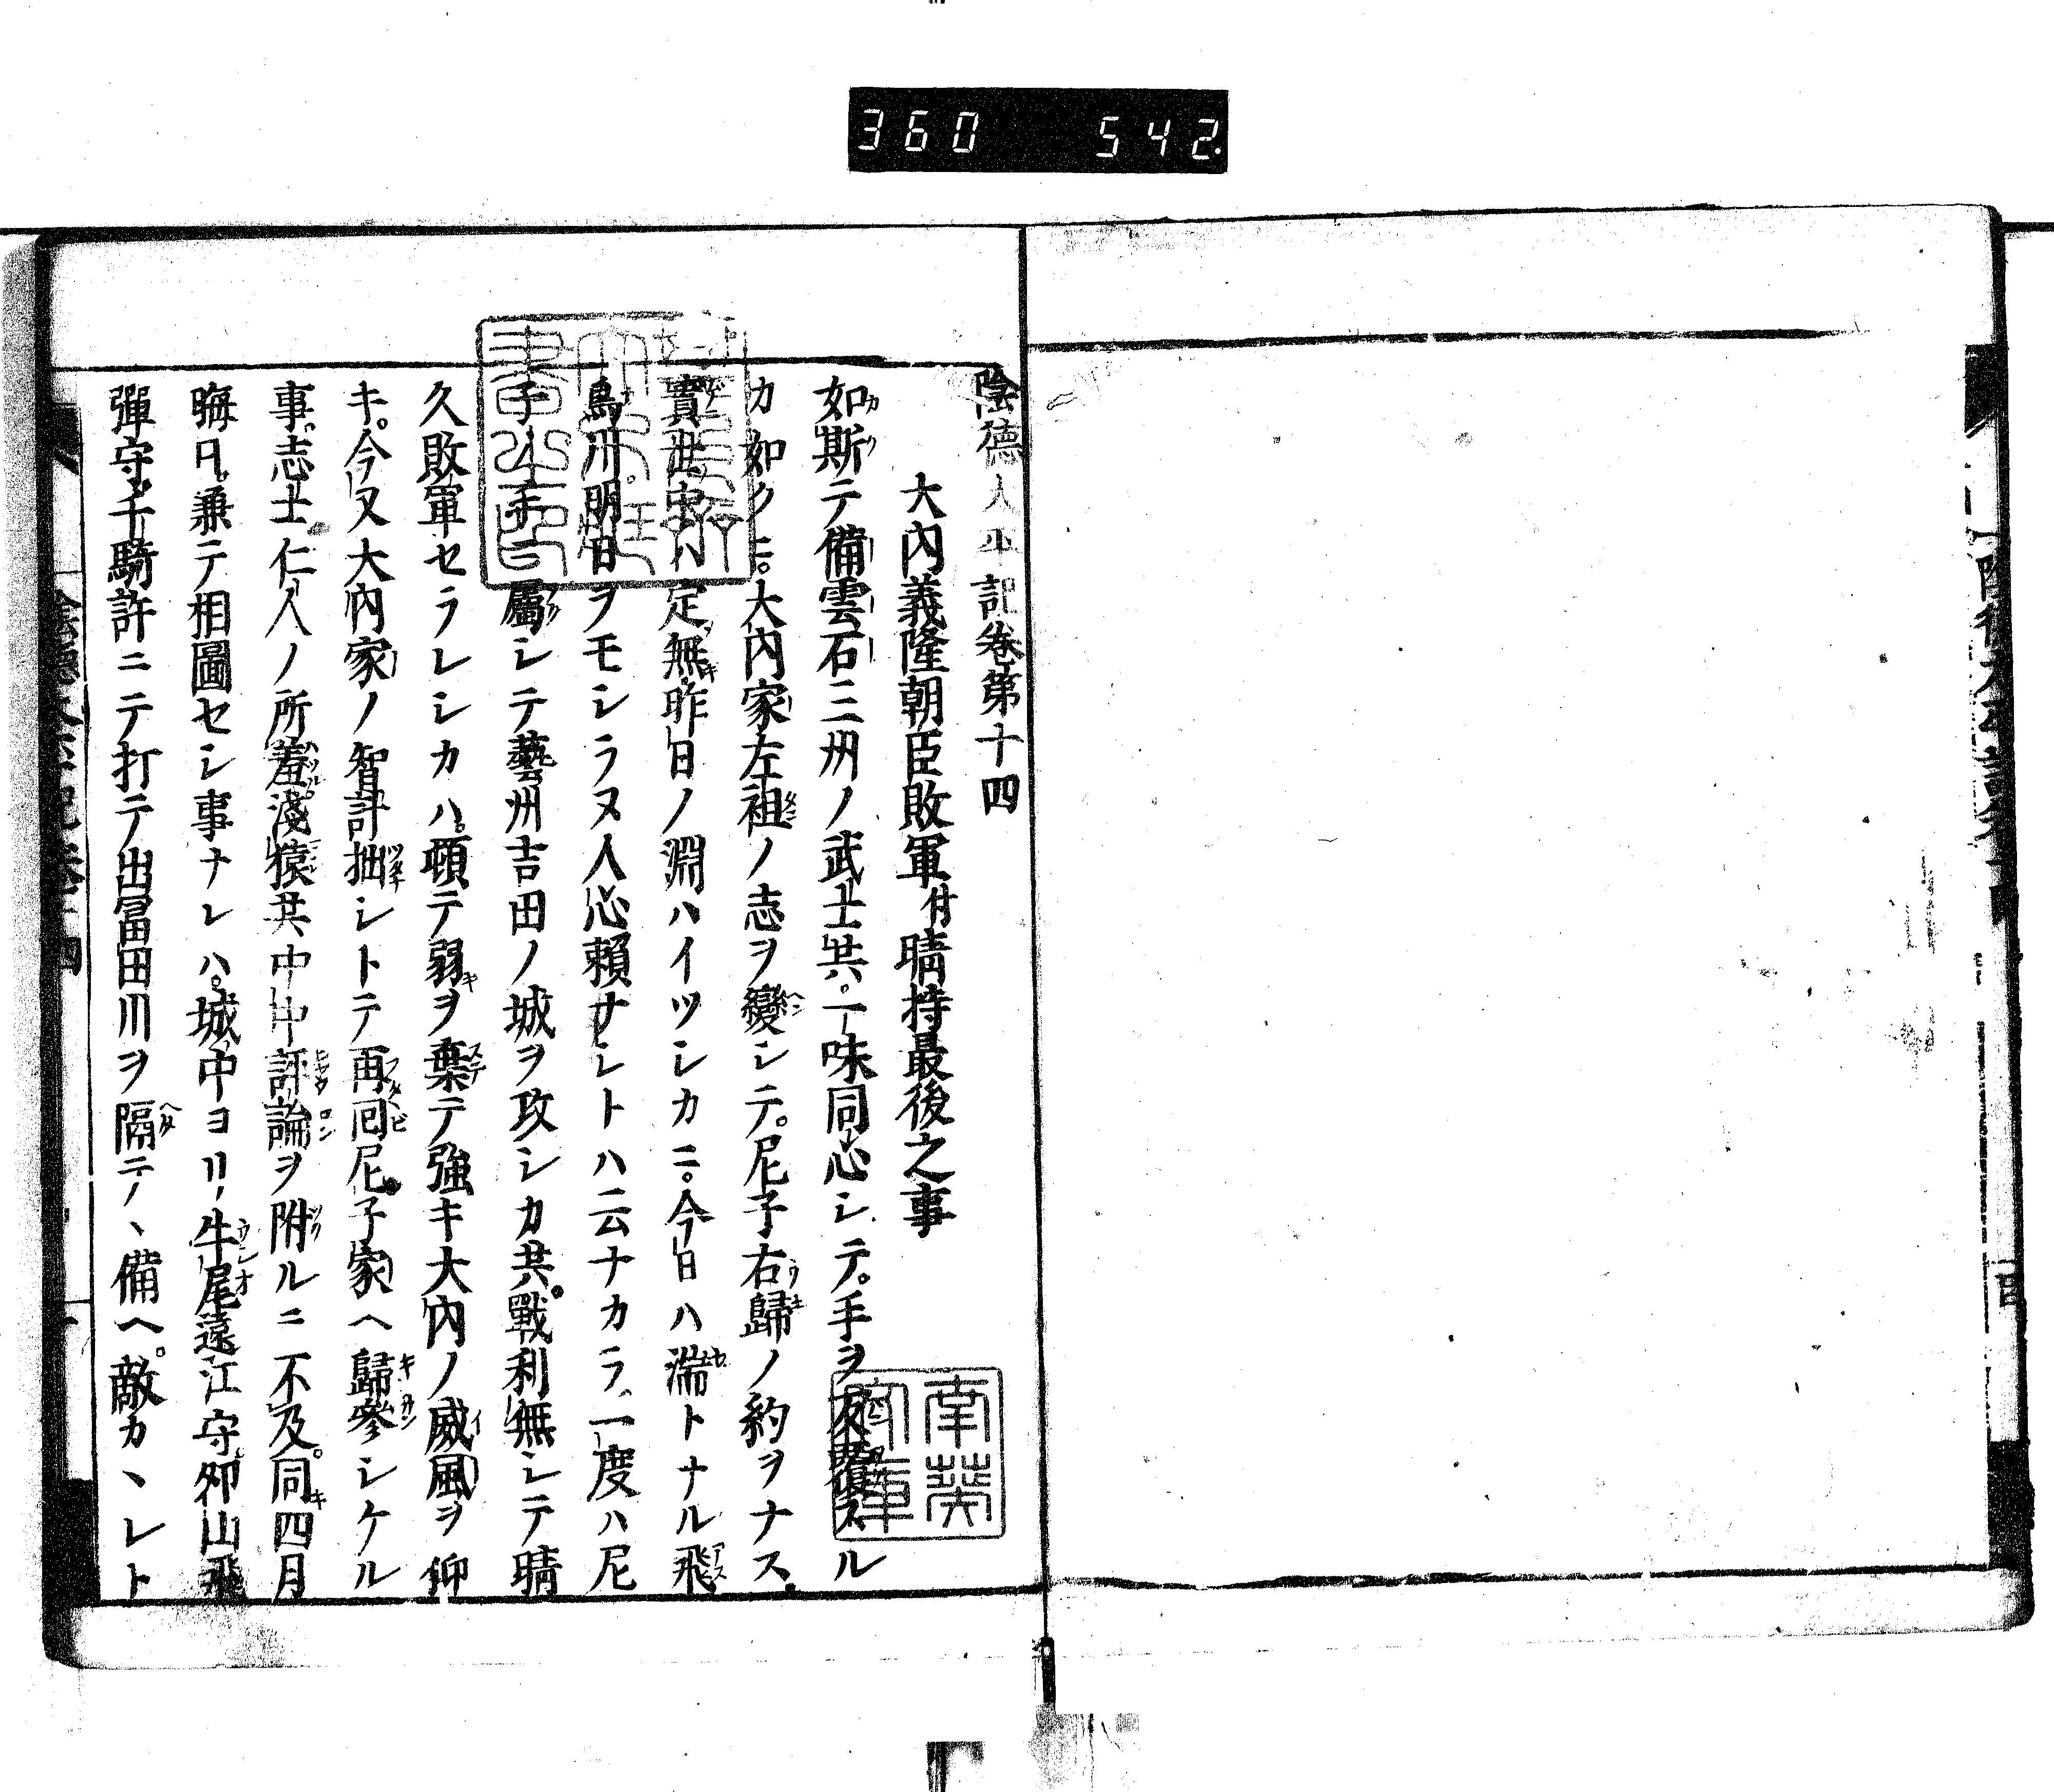 360 542.
陰德太平記卷第十四
大內義隆朝臣敗軍付晴持最後之事
如斯テ備雲石三州ノ武士共。一味同心シテ。手ヲ反覆スル
カ如クニ。大內家左袒ノ志ヲ變シテ。尼子右歸ノ約ヲナス。
實世中ハ定無キ。昨日ノ淵ハイツシカニ。今日ハ湍トナル飛
鳥川。明日ヲモシラヌ人心賴ナシトハ云ナカラ、一度ハ尼
子手ニ屬シテ藝州吉田ノ城ヲ攻シカ共。戰利無シテ晴
久敗軍セラレシカハ。頓テ弱キヲ棄テ強キ大內ノ威風ヲ仰
キ。今又大內家ノ智計拙シトテ再囘尼子家ヘ歸參シケル
事。志士仁人ノ所羞淺猿共中中評論ヲ附ルニ不及。同キ四月
晦日。兼テ相圖セシ事ナレハ。城中ヨリ牛尾遠江守。卯山飛
彈守。千騎許ニテ打テ出冨田川ヲ隔テ丶備ヘ。敵カ丶レト
南葵
文庫